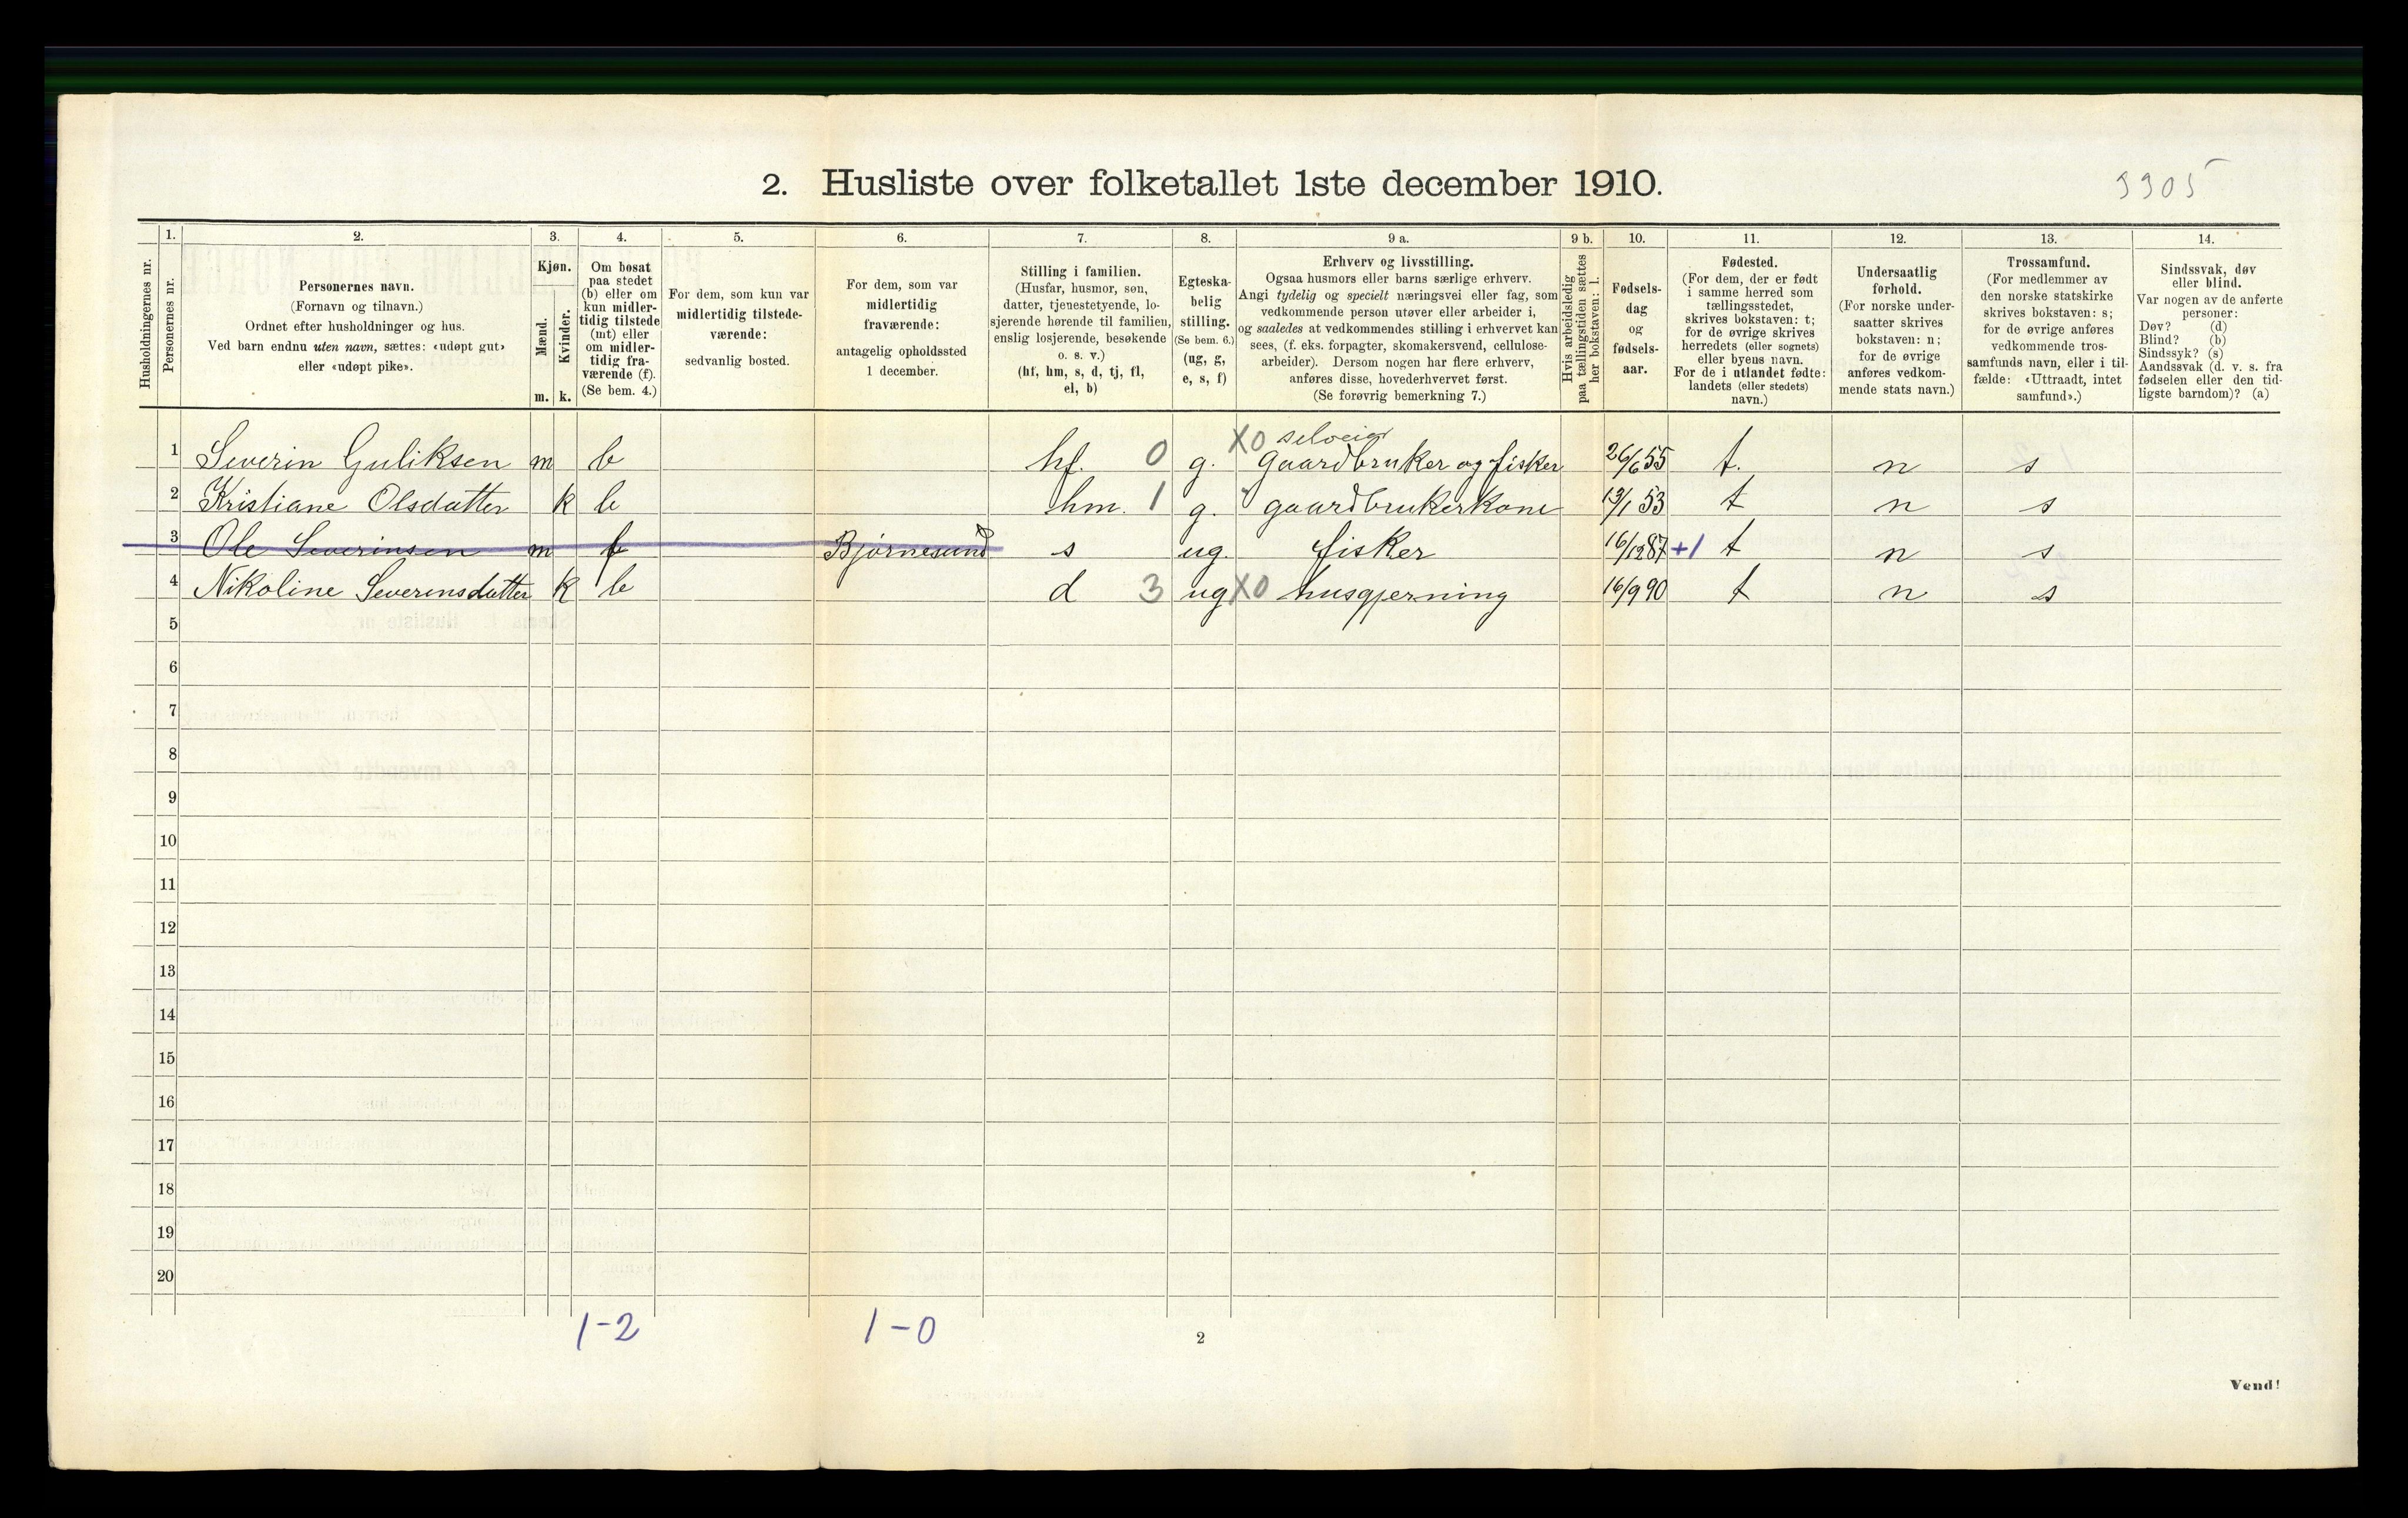 3305
2. Husliste over folketallet 1ste december 1910.
Husholdningernes nr.
1.
Personernes nr.
2.
Personernes navn.
(Fornavn og tilnavn.)
Ordnet efter husholdninger og hus.
Ved barn endnu uten navn, sættes: «udøpt gut»
eller «udøpt pike».
3.
Kjøn.
Mænd.
Kvinder.
m. k.
4.
Om bosat
paa stedet
(b) eller om
kun midler-
tidig tilstede
(mt) eller
om midler-
tidig fra-
værende (f).
(Se bem. 4.)
5.
For dem, som kun var
midlertidig tilstede-
værende:
sedvanlig bosted.
6.
For dem, som var
midlertidig
fraværende:
antagelig opholdssted
1 december.
7.
Stilling i familien.
(Husfar, husmor, søn,
datter, tjenestetyende, lo-
sjerende hørende til familien,
enslig losjerende, besøkende
o. s. v.)
(hf, hm, s, d, tj, fl,
el, b)
8.
Egteska-
belig
stilling.
(Se bem. 6.)
(ug, g,
e, s, f)
9 a.
Erhverv og livsstilling.
Ogsaa husmors eller barns særlige erhverv.
Angi tydelig og specielt næringsvei eller fag, som
vedkommende person utøver eller arbeider i,
og saaledes at vedkommendes stilling i erhvervet kan
sees, (f. eks. forpagter, skomakersvend, cellulose-
arbeider). Dersom nogen har flere erhverv,
anføres disse, hovederhvervet først.
(Se forøvrig bemerkning 7.)
9 b.
Hvis arbeidsledig
paa tællingstiden sættes
her bokstaven: l.
10.
Fødsels-
dag
og
fødsels-
aar.
11.
Fødested.
(For dem, der er født
i samme herred som
tællingsstedet,
skrives bokstaven: t;
for de øvrige skrives
herredets (eller sognets)
eller byens navn.
For de i utlandet fødte:
landets (eller stedets)
navn.)
12.
Undersaatlig
forhold.
(For norske under-
saatter skrives
bokstaven: n;
for de øvrige
anføres vedkom-
mende stats navn.)
13.
Trossamfund.
(For medlemmer av
den norske statskirke
skrives bokstaven: s;
for de øvrige anføres
vedkommende tros-
samfunds navn, eller i til-
fælde: «Uttraadt, intet
samfund».)
14.
Sindssvak, døv
eller blind.
Var nogen av de anførte
personer:
Døv? (d)
Blind? (b)
Sindssyk? (s)
Aandssvak (d. v. s. fra
fødselen eller den tid-
ligste barndom)? (a)
selveier
1 Severin Guliksen m b hf. 0 g. X0 gaardbruker og fisker 26/6 55 t. n s
2 Kristiane Olsdatter k b hm. 1 g. gaardbrukerkone 13/1 53 t n s
3 Ole Severinsen m f Bjørnesund s ug. fisker 16/12 87 +1 t n s
4 Nikoline Severinsdatter k b d 3 ug X0 husgjerning 16/9 90 t n s
5
6
7
8
9
10
11
12
13
14
15
16
17
18
19
20
1-2 1-0
2
Vend!